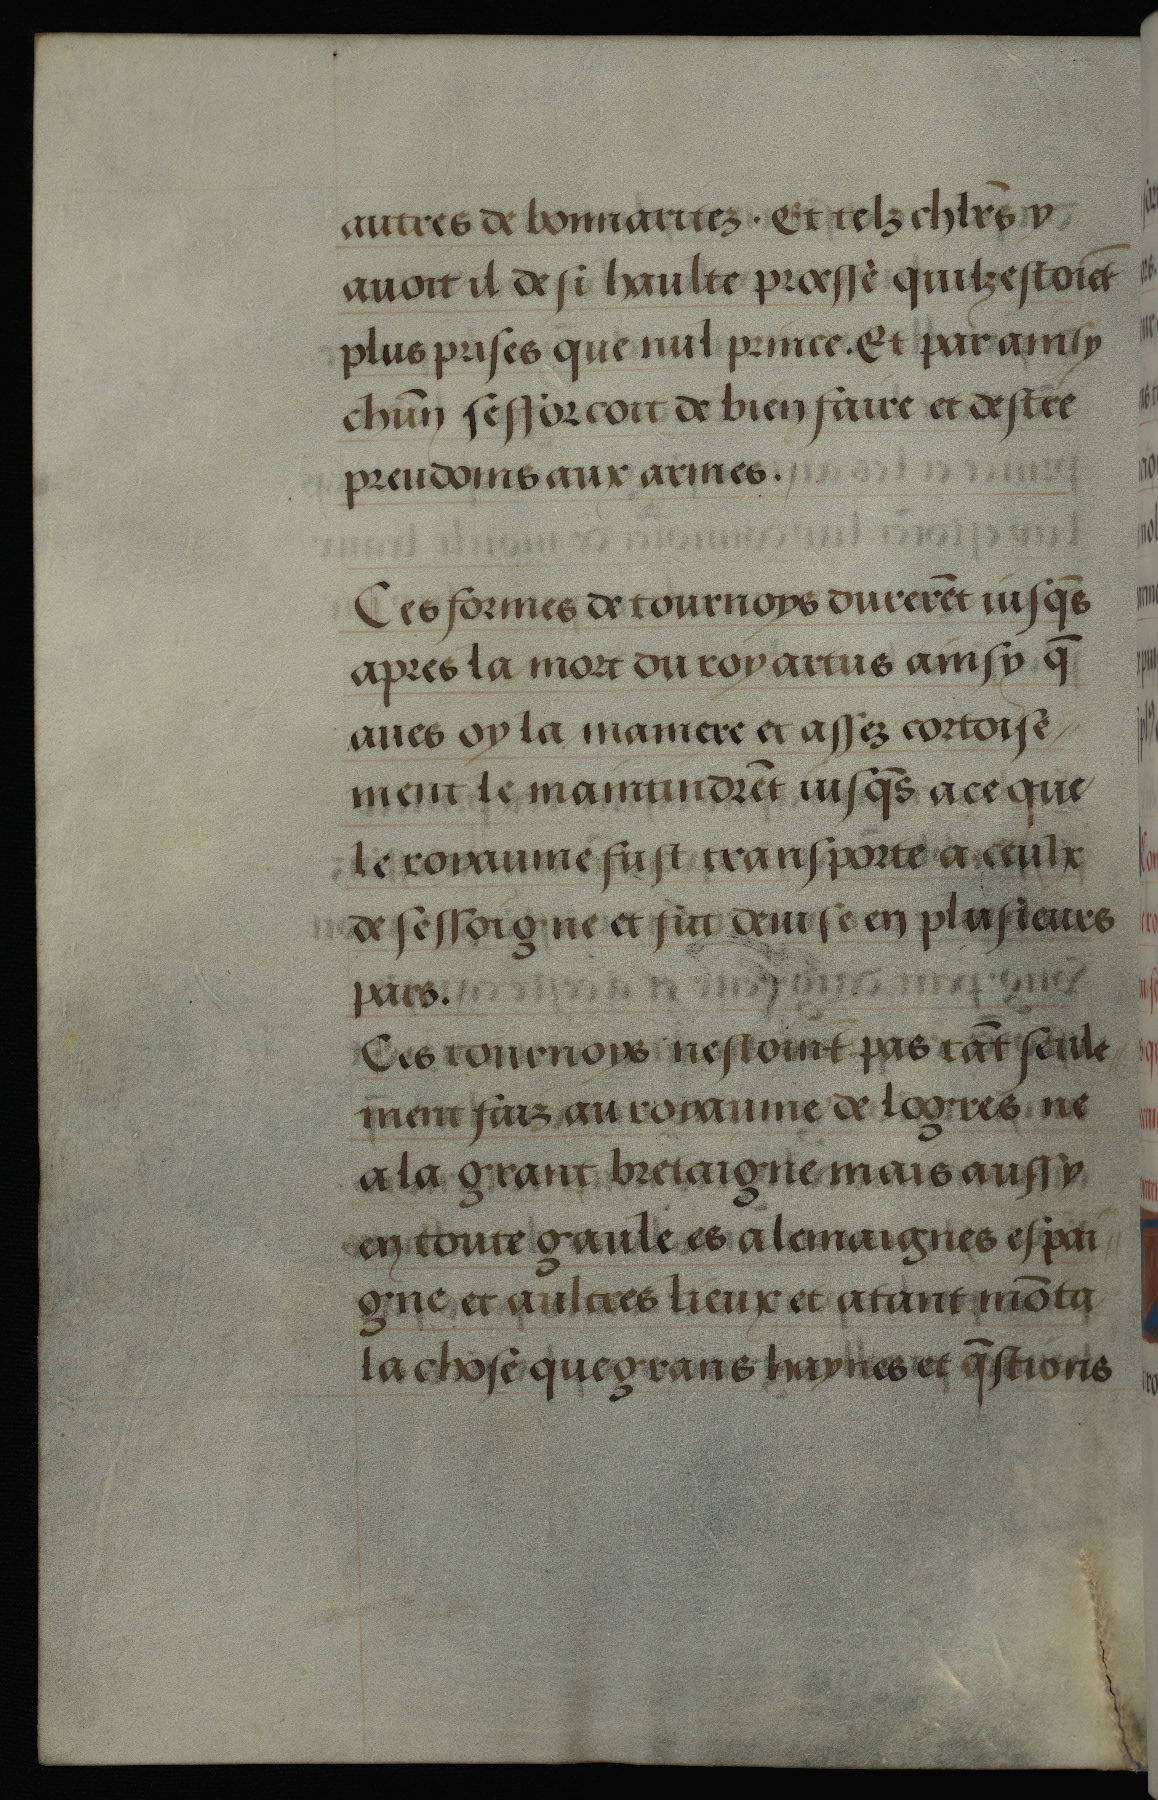 autres de bonnairitez. Et telz chlrs̄ y
auoit il de si haulte proesse quilz estoiēt
plus prises que nul prince. Et par ainsy
chūn sefforcoit de bien faire et destēe
preudoms aux armes.
Ces formes de tournoys durerēt iusq̄s
apres la mort du roy artus ainsy q̄
aues oy la maniere et assez cortoise//
ment le maintindrēt iusq̄s a ce que
le royaume fust transporte a ceulx
de sessoigne et fut deuise en plusieurs
pars.
Ces tournoys nestoint̄ pas tāt seule/
ment faiz au royaume de logres ne
a la grant bretaigne mais aussy
en toute gaule es alemaignes espai//
gne et aultres lieux et atant mōta
la chose que grans haynes et q̄stions